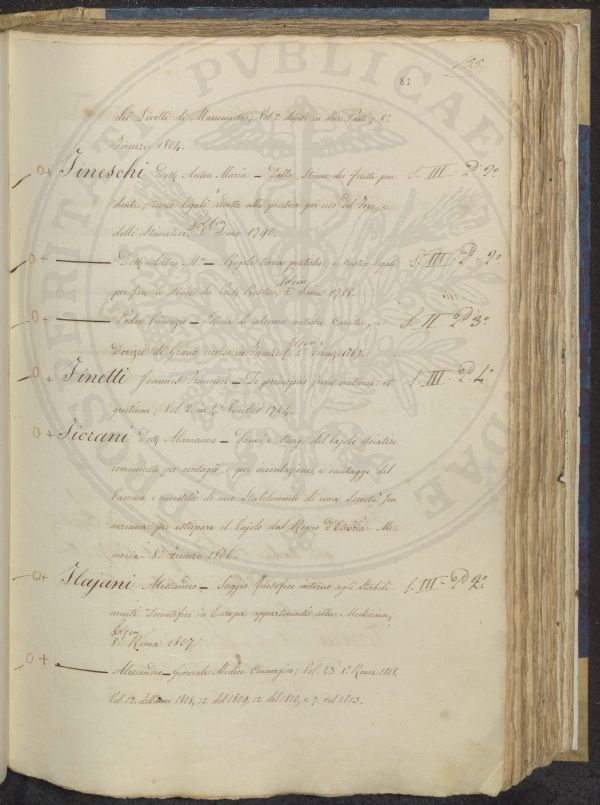 155
81
dei Livelli di Manomorta; Vol. 2 divisi in due Parti; 8.°
Firenze 1804.
Fineschi Dott. Anton Maria — Delle Stime dei frutti pen
denti, teorie legali ridotte alla pratica per uso del Foro, e
S. III. 2.° 9.°
delli Stimatori; 8.° Siena 1790.
— Dott. Anton M.ª — Regole teorico pratiche e rustico legali
S. III. 2.° 9.°
per fare le Stime dei Predj Rustici, 8.° Siena 1788.
— Padre Vincenzio — Storia di alcune antiche Carestie, e
S. II. 2.° 3.°
Dovizie di Grano 1767.
Finetti Joannis Francisci — De principiis juris naturae et
S. III. 2.° 4.°
gentium; Vol. 2. in 4.° Venetiis 1764.
Fiorani Dott. Alamanno — Danni e Stragi del Vajolo Umano
comunicato per contagio e per inoculazione, e vantaggi del
Vaccino e necessità di uno Stabilimento di una Società Jen
neriana per estirpare il Vajolo dal Regno d'Etruria Me
moria 8.° Firenze 1806.
Flajani Alessandro — Saggio filosofico intorno agli Stabili-
S. III. 2.° 2.°
menti Scientifici in Europa appartenenti alla Medicina,
8.° Roma 1807.
— Alessandro — Giornale Medico Chirurgico; Vol. 8.° Roma 1808.
Vol. 12. dell'anno 1808, 12. del 1809, 12. del 1810, e 7. del 1813.
PROSPERITATI PVBLICAE